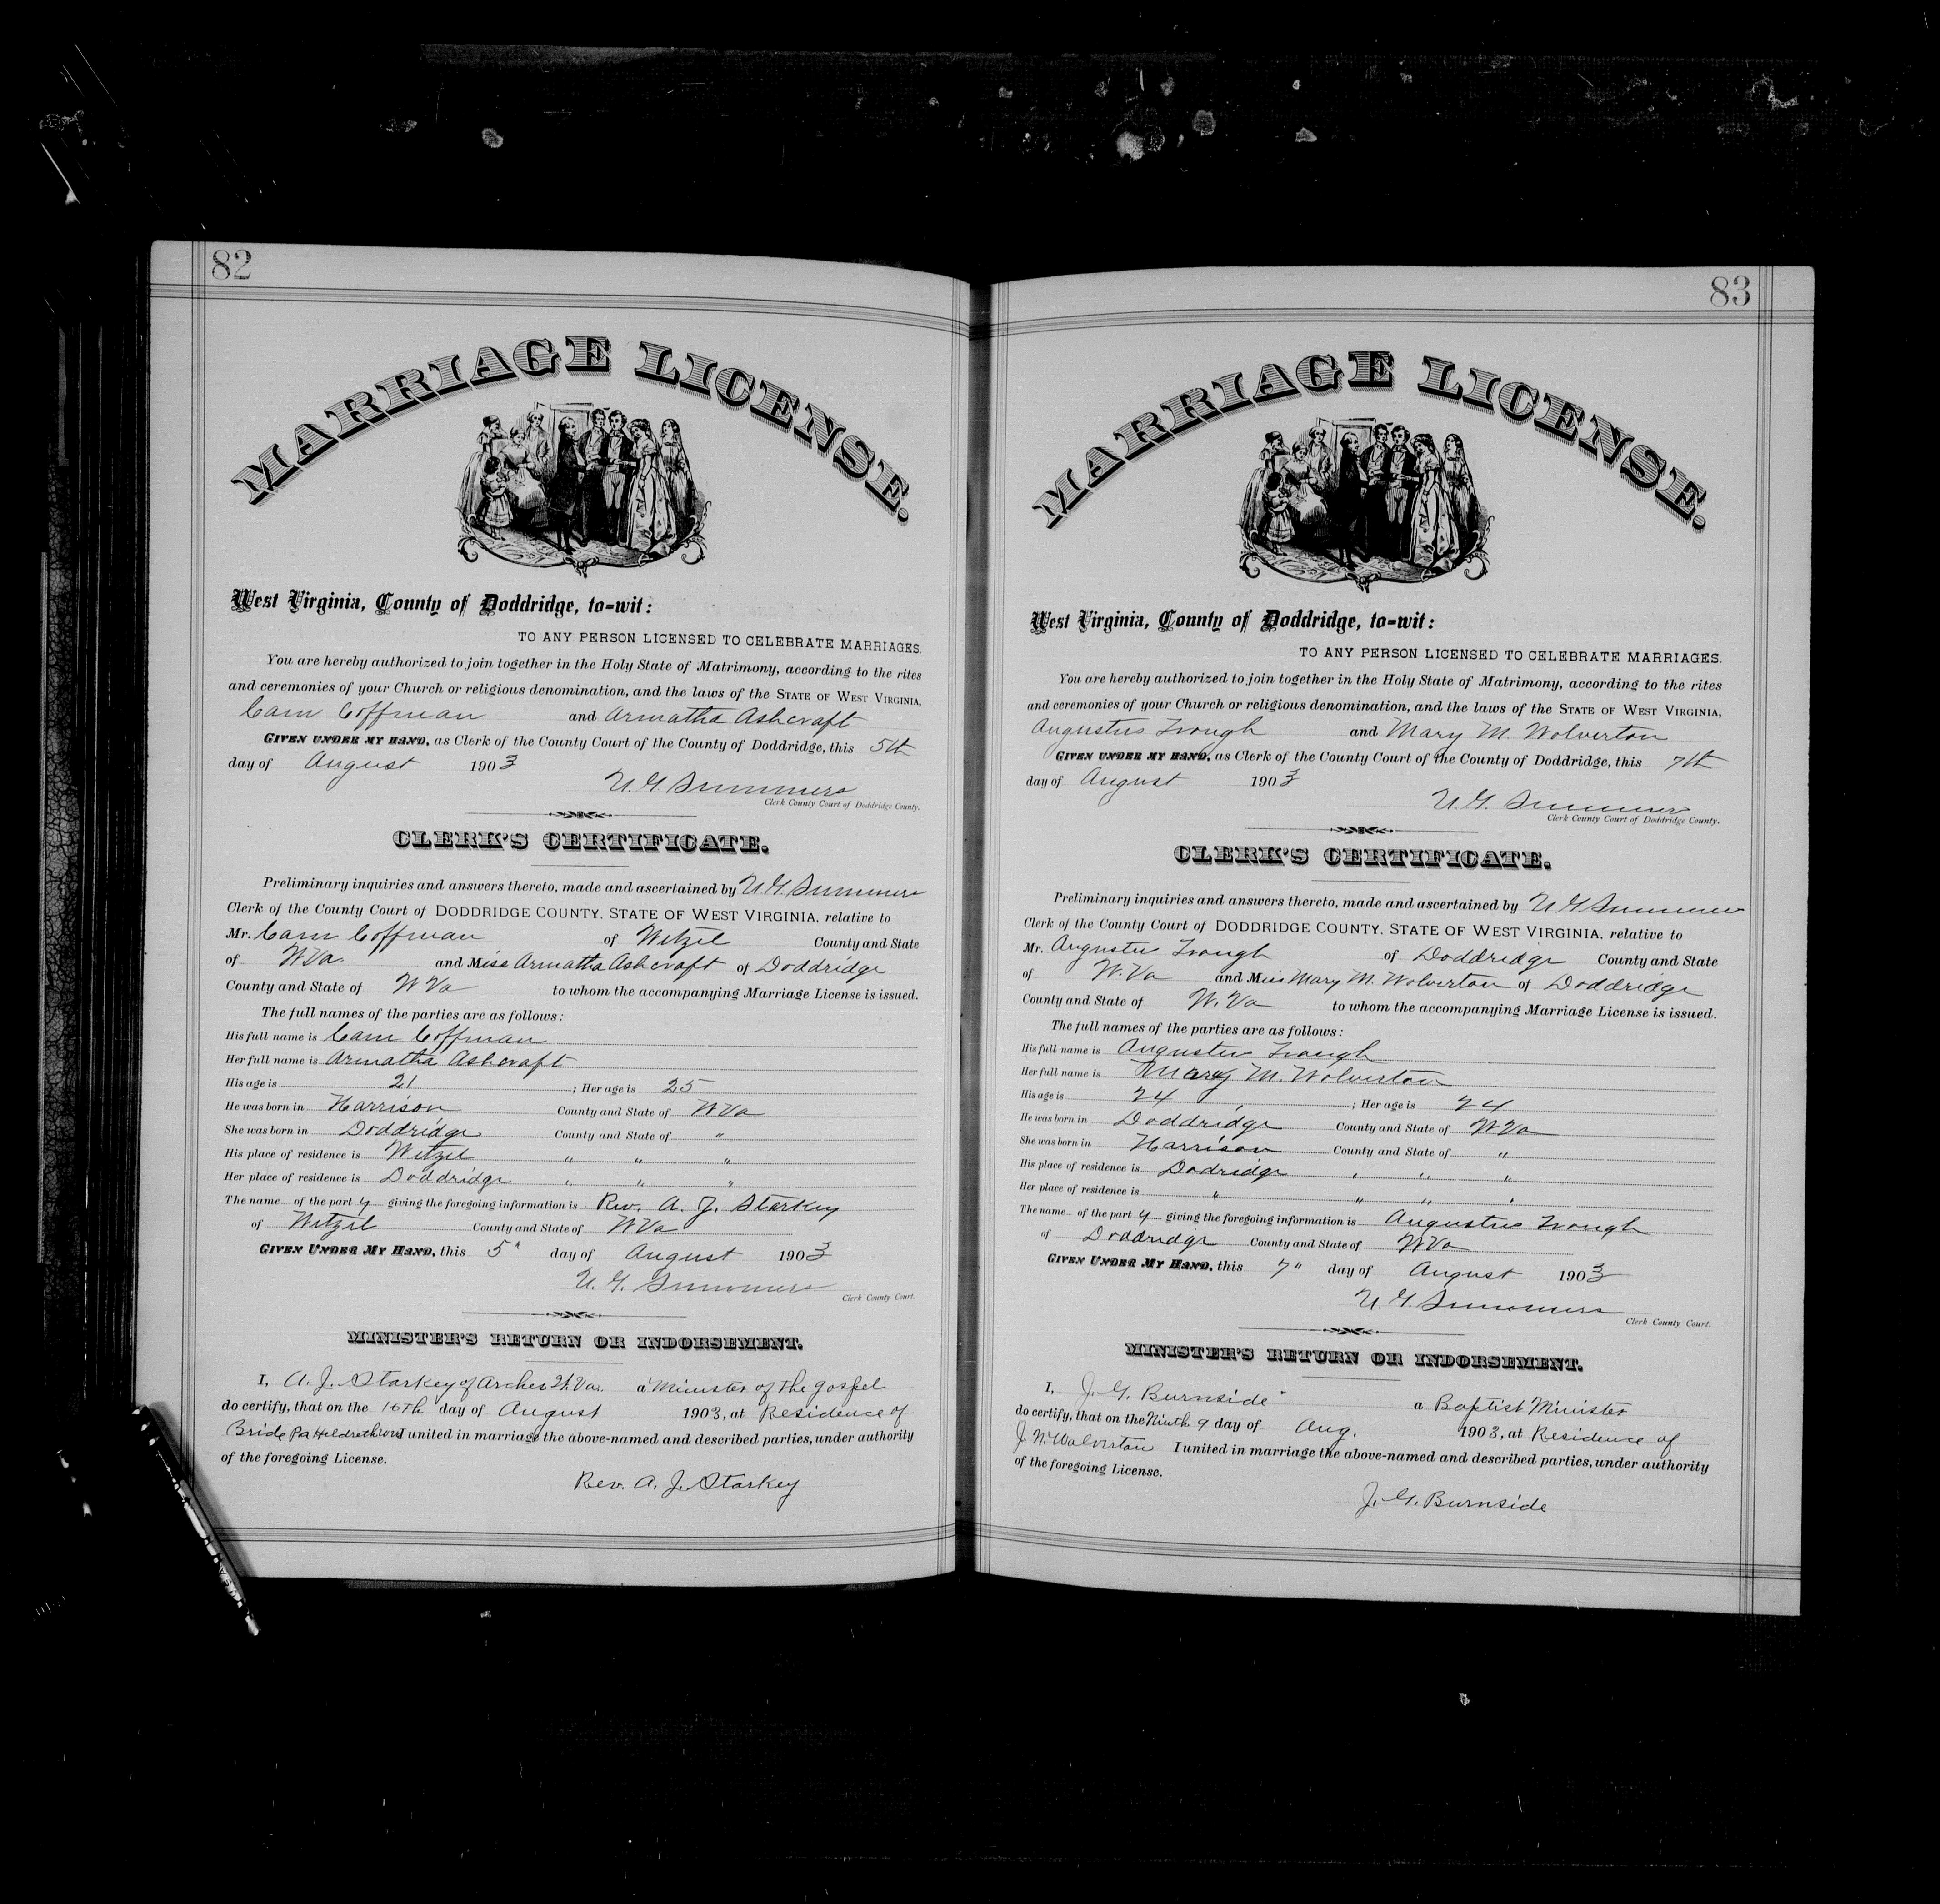 82
MARRIAGE LICENSE.
West Virginia, County of Doddridge, to=wit:
TO ANY PERSON LICENSED TO CELEBRATE MARRIAGES.
You are hereby authorized to join together in the Holy State of Matrimony, according to the rites
and ceremonies of your Church or religious denomination, and the laws of the STATE OF WEST VIRGINIA,
Cam Coffman and Armatha Ashcraft
GIVEN UNDER MY HAND, as Clerk of the County Court of the County of Doddridge, this 5th
day of August 1903
U. G. Summers
Clerk County Court of Doddridge County.
CLERK'S CERTIFICATE.
Preliminary inquiries and answers thereto, made and ascertained by U. G. Summers
Clerk of the County Court of DODDRIDGE COUNTY, STATE OF WEST VIRGINIA, relative to
Mr. Cam Coffman of Wetzil County and State
of W Va. and Miss Armatha Ashcraft of Doddridge
County and State of W Va to whom the accompanying Marriage License is issued.
The full names of the parties are as follows:
His full name is Cam Coffman
Her full name is Armatha Ashcraft
His age is 21 ; Her age is 25
He was born in Harrison County and State of W Va
She was born in Doddridge County and State of "
His place of residence is Wetzil " " "
Her place of residence is Doddridge " " "
The name of the party giving the foregoing information is Rev. A. J. Starkey
of Wetzil County and State of W Va
GIVEN UNDER MY HAND, this 5" day of August 1903
U. G. Summers
Clerk County Court.
MINISTER'S RETURN OR INDORSEMENT.
I, A. J. Starkey of Arches W. Va. a Minister of the gospel
do certify, that on the 16th day of August 1903, at Residence of
Bride Pa I united in marriage the above-named and described parties, under authority
of the foregoing License.
Rev. A. J. Starkey
83
MARRIAGE LICENSE.
West Virginia, County of Doddridge, to=wit:
TO ANY PERSON LICENSED TO CELEBRATE MARRIAGES.
You are hereby authorized to join together in the Holy State of Matrimony, according to the rites
and ceremonies of your Church or religious denomination, and the laws of the STATE OF WEST VIRGINIA,
Augustus Trough and Mary M. Wolverton
GIVEN UNDER MY HAND, as Clerk of the County Court of the County of Doddridge, this 7th
day of August 1903
U. G. Summers
Clerk County Court of Doddridge County.
CLERK'S CERTIFICATE.
Preliminary inquiries and answers thereto, made and ascertained by U G Summers
Clerk of the County Court of DODDRIDGE COUNTY, STATE OF WEST VIRGINIA, relative to
Mr. Augustus Trough of Doddridge County and State
of W. Va and Miss Mary M. Wolverton of Doddridge
County and State of W. Va to whom the accompanying Marriage License is issued.
The full names of the parties are as follows:
His full name is Augustus Trough
Her full name is Mary M. Wolverton
His age is 24 ; Her age is 24
He was born in Doddridge County and State of W Va
She was born in Harrison County and State of "
His place of residence is Dodridge " " "
Her place of residence is " " " "
The name of the party giving the foregoing information is Augustus Trough
of Doddridge County and State of W Va
GIVEN UNDER MY HAND, this 7" day of August 1903
U. G. Summers
Clerk County Court.
MINISTER'S RETURN OR INDORSEMENT.
I, J. G. Burnside a Baptist Minister
do certify, that on the Ninth 9 day of Aug. 1903, at Residence of
J. W. Wolverton I united in marriage the above-named and described parties, under authority
of the foregoing License.
J. G. Burnside